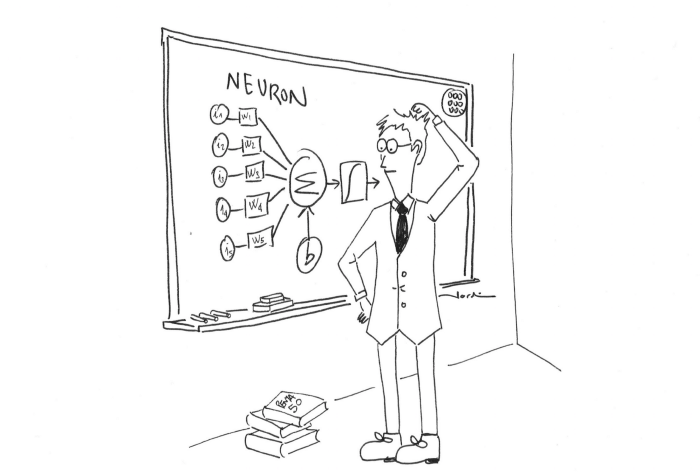 NEURON
i1 W1
i2 W2
i3 W3
i4 W4
i5 W5
Σ
b